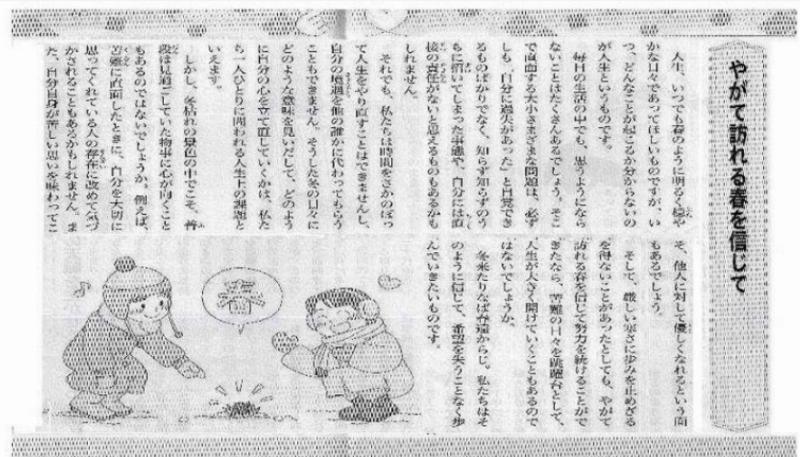 やがて訪れる春を信じて
人生、いつでも春のように明るく穏や
かな日々であってほしいものですが、い
つ、どんなことが起こるか分からないの
が人生というものです。
毎日の生活の中でも、思うようになら
ないことはたくさんあるでしょう。そこ
で直面する大小さまざまな問題は、必ず
しも「自分に過失があった」と自覚でき
るものばかりでなく、知らず知らずのう
ちに招いてしまった事態や、自分には直
接の責任がないと思えるものもあるかも
しれません。
それでも、私たちは時間をさかのぼっ
て人生をやり直すことはできませんし、
自分の境遇を他の誰かに代わってもらう
こともできません。そうした冬の日々に
どのような意味を見いだして、どのよう
に自分の心を立て直していくかは、私た
ち一人ひとりに問われる人生上の課題と
いえます。
しかし、冬枯れの景色の中でこそ、普
段は見過ごしていた物事に心が向くこと
もあるのではないでしょうか。例えば、
苦難に直面したときに、自分を大切に
思ってくれている人の存在に改めて気づ
かされることもあるかもしれません。ま
た、自分自身が苦しい思いを味わってこ
そ、他人に対して優しくなれるという面
もあるでしょう。
そして、厳しい寒さに歩みを止めざる
を得ないことがあったとしても、やがて
訪れる春を信じて努力を続けることがで
きたなら、苦難の日々を跳躍台として、
人生が大きく開けていくこともあるので
はないでしょうか。
冬来たりなば春遠からじ。私たちはそ
のように信じて、希望を失うことなく歩
んでいきたいものです。
春